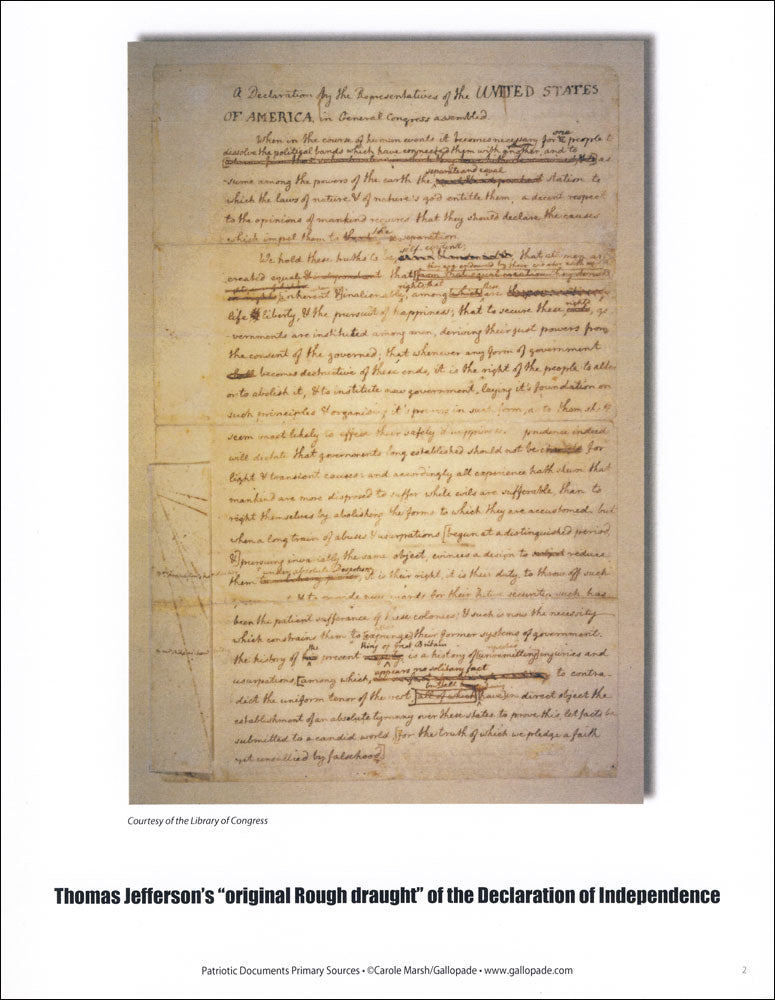 A Declaration by the Representatives of the UNITED STATES
OF AMERICA, in General Congress assembled.
When in the course of human events it becomes necessary for one people to
dissolve the political bands which have connected them with another, and to
as-
sume among the powers of the earth the separate and equal station to
which the laws of nature & of nature's god entitle them, a decent respect
to the opinions of mankind requires that they should declare the causes
which impel them to the separation.
We hold these truths to be self-evident; that all men are
created equal that they are endowed by their creator with
inherent & inalienable rights; that among which these are
life, liberty, & the pursuit of happiness; that to secure these rights, go-
vernments are instituted among men, deriving their just powers from
the consent of the governed; that whenever any form of government
shall becomes destructive of these ends, it is the right of the people to alter
or to abolish it, & to institute new government, laying it's foundation on
such principles & organising it's powers in such form, as to them shall
seem most likely to effect their safety & happiness. prudence indeed
will dictate that governments long established should not be changed for
light & transient causes: and accordingly all experience hath shewn that
mankind are more disposed to suffer while evils are sufferable, than to
right themselves by abolishing the forms to which they are accustomed. but
when a long train of abuses & usurpations [begun at a distinguished period,
&] pursuing invariably the same object, evinces a design to subject reduce
them under absolute Despotism, it is their right, it is their duty, to throw off such
& to provide new guards for their future security. such has
been the patient sufferance of these colonies; & such is now the necessity
which constrains them to [expunge] their former systems of government.
the history of his the present King of Great Britain is a history of [unremitting] injuries and
usurpations, [among which, appears no solitary fact to contra-
dict the uniform tenor of the rest [all of which] have in direct object the
establishment of an absolute tyranny over these states. to prove this let facts be
submitted to a candid world [for the truth of which we pledge a faith
yet unsullied by falsehood]
Courtesy of the Library of Congress
Thomas Jefferson's “original Rough draught” of the Declaration of Independence
Patriotic Documents Primary Sources • ©Carole Marsh/Gallopade • www.gallopade.com
2